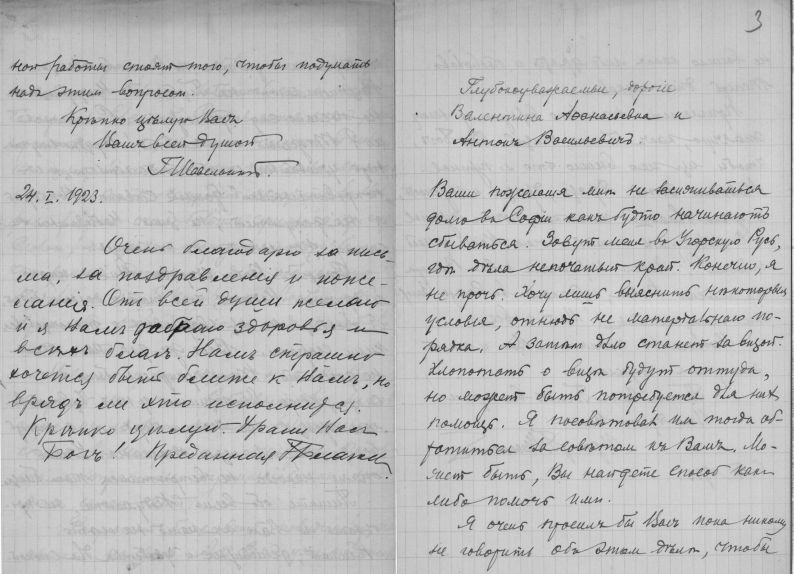 ной работы стоят того, чтобы подумать
надъ этим вопросом.
Крѣпко цѣлую Васъ
Вашъ всей душой
24. I. 1923.
Очень благодарю за пись-
ма, за поздравления и поже-
лания. Отъ всей души желаю
и я Вамъ добраго здоровья и
всѣхъ благъ. Намъ страшно
хочется быть ближе к Вамъ, но
врядъ ли это исполнится.
Крѣпко цѣлую. Храни Васъ
Богъ! Преданная
3
Глубокоуважаемые, дорогіе
Валентина Афанасьевна и
Антонъ Васильевичъ.
Ваши пожелания мнѣ не засиживаться
долго въ Софіи какъ будто начинаютъ
сбываться. Зовут меня въ Угорскую Русь,
гдѣ дѣла непочатый край. Конечно, я
не прочь. Хочу лишь выяснить нѣкоторыя
условія, отнюдь не матеріальнаго по-
рядка. А затѣм дѣло станет за визой.
Хлопотать о визѣ будут оттуда,
но может быть потребуется для них
помощь. Я посовѣтовал им тогда об-
ратиться за совѣтом къ Вамъ. Мо-
жет быть, Вы найдете способ как-
либо помочь ими.
Я очень просилъ бы Васъ пока никому
не говорить объ этом дѣлѣ, чтобы